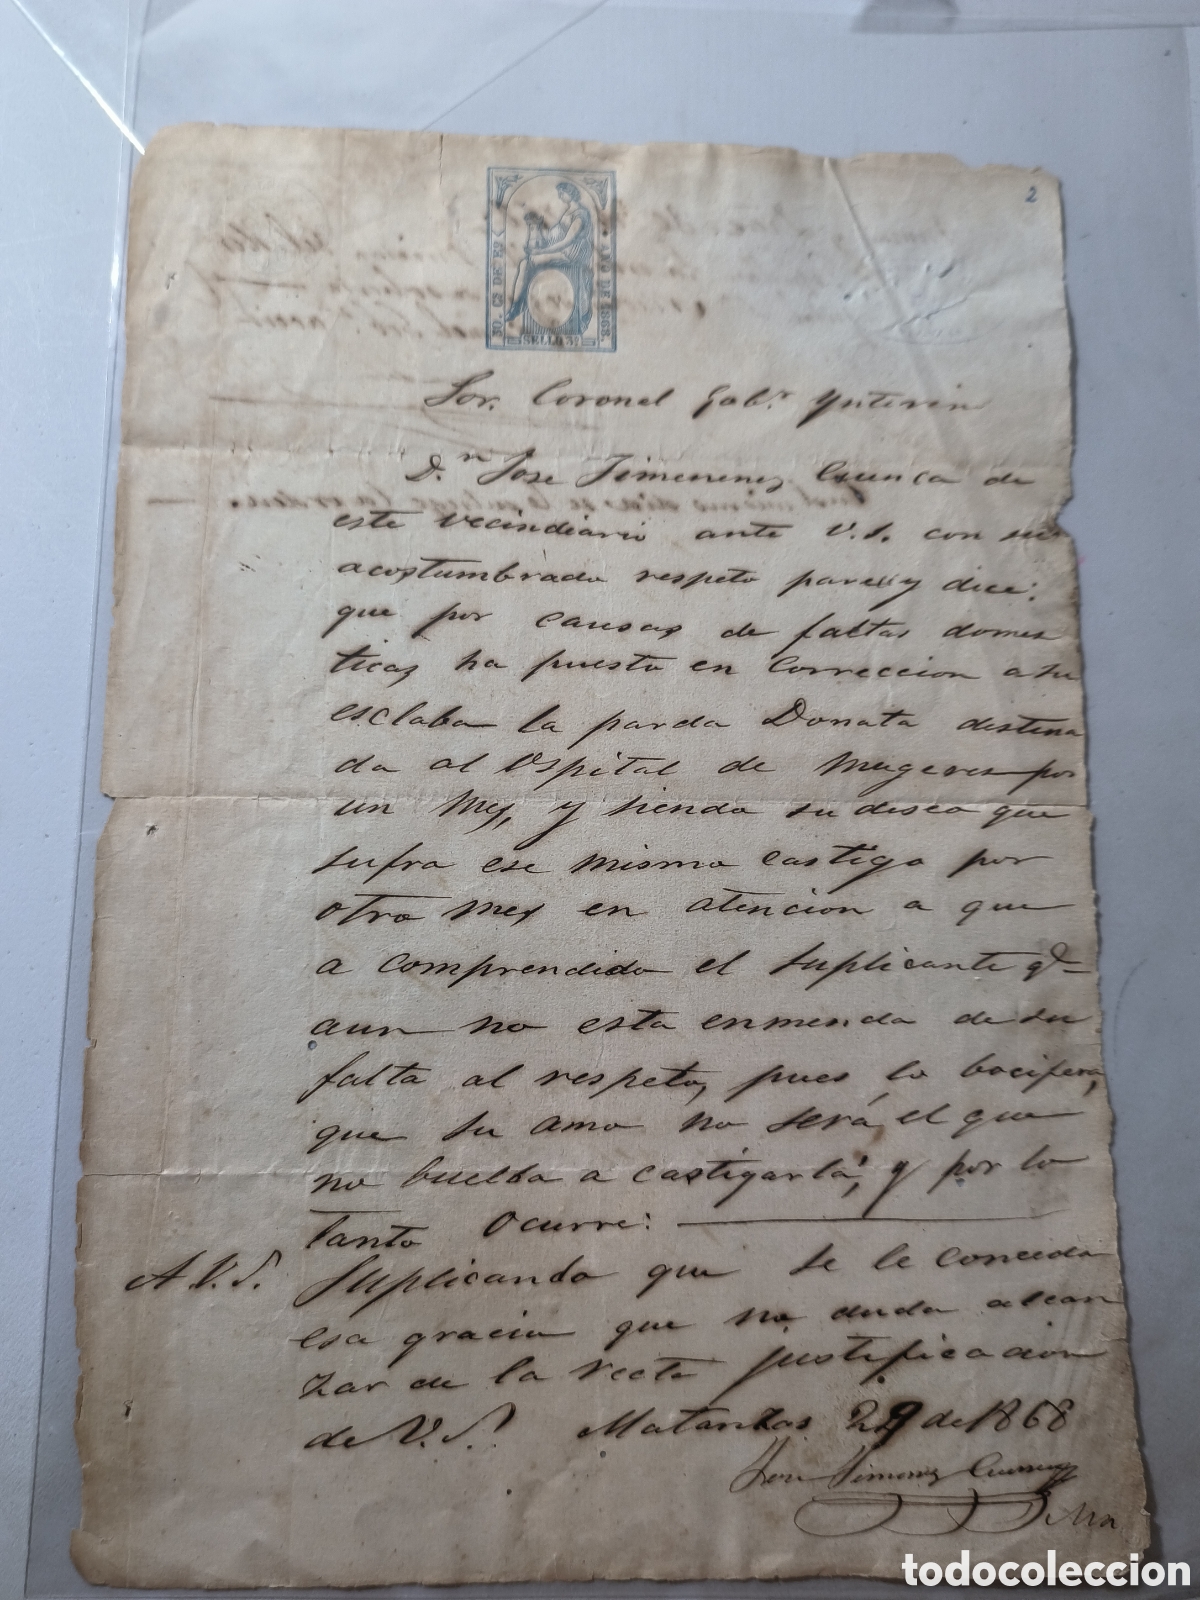 2
50. Cs DE Eº
AÑO DE 1868.
SELLO 3º
Sor. Coronel Gobr. Ynterin
Dn Jose Jimenenez Cuenca de
este vecindiario ante V.S. con su
acostumbrado respeto parece y dice:
que por causas de faltas domes
ticas, ha puesto en correccion a su
esclaba la parda Donata destina
da al Ospital de Mugeres por
un Mes, y siendo su deseo que
sufra ese mismo castigo por
otro mes en atencion a que
a comprendido el suplicante qe
aun no esta enmendada de su
falta al respeto, pues lo bocifera,
que su amo no será el que
no buelba a castigarla, y por lo
tanto ocurre:
A V.S. Suplicando que se le conceda
esa gracia que no duda alcan
zar de la recta justificacion
de V.S. Matanzas 29 de 1868
Jose Jimenez Cuenca
todocoleccion